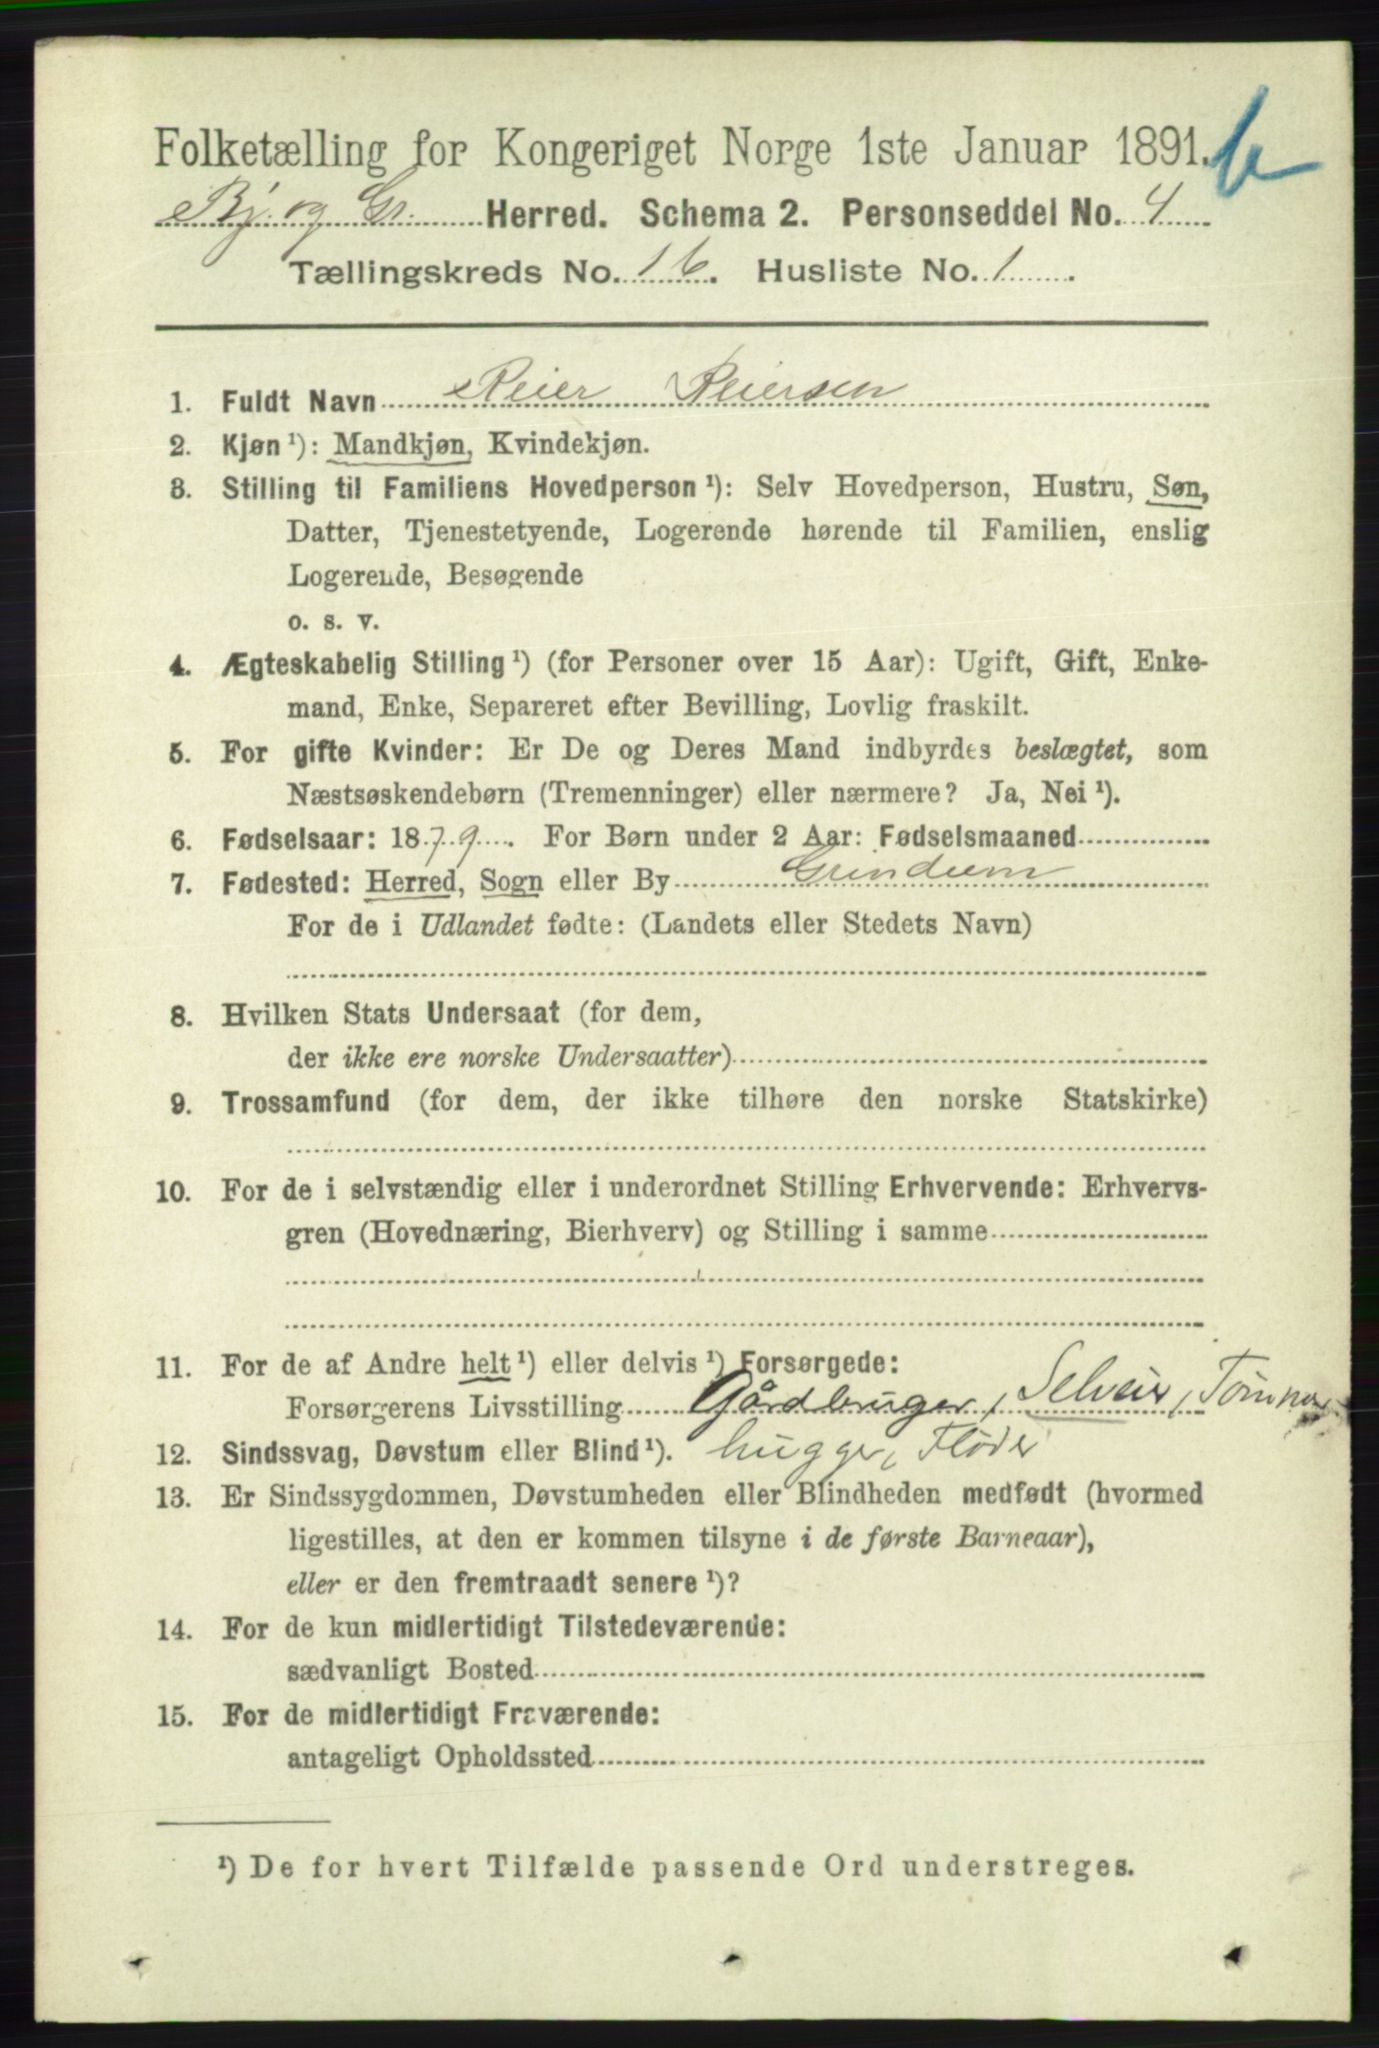 Folketælling for Kongeriget Norge 1ste Januar 1891. b
Bj. og Gr. Herred. Schema 2. Personseddel No. 4
Tællingskreds No. 16. Husliste No. 1.
1. Fuldt Navn Reier Reiersen
2. Kjøn ¹): Mandkjøn, Kvindekjøn.
3. Stilling til Familiens Hovedperson ¹): Selv Hovedperson, Hustru, Søn,
Datter, Tjenestetyende, Logerende hørende til Familien, enslig
Logerende, Besøgende
o. s. v.
4. Ægteskabelig Stilling ¹) (for Personer over 15 Aar): Ugift, Gift, Enke-
mand, Enke, Separeret efter Bevilling, Lovlig fraskilt.
5. For gifte Kvinder: Er De og Deres Mand indbyrdes beslægtet, som
Næstsøskendebørn (Tremenninger) eller nærmere? Ja, Nei ¹).
6. Fødselsaar: 1879. For Børn under 2 Aar: Fødselsmaaned
7. Fødested: Herred, Sogn eller By Grindum
For de i Udlandet fødte: (Landets eller Stedets Navn)
8. Hvilken Stats Undersaat (for dem,
der ikke ere norske Undersaatter)
9. Trossamfund (for dem, der ikke tilhøre den norske Statskirke)
10. For de i selvstændig eller i underordnet Stilling Erhvervende: Erhvervs-
gren (Hovednæring, Bierhverv) og Stilling i samme
11. For de af Andre helt ¹) eller delvis ¹) Forsørgede:
Forsørgerens Livsstilling Gårdbruger, Selveier, Tømmer
12. Sindssvag, Døvstum eller Blind ¹). hugger, Fløder
13. Er Sindssygdommen, Døvstumheden eller Blindheden medfødt (hvormed
ligestilles, at den er kommen tilsyne i de første Barneaar),
eller er den fremtraadt senere ¹)?
14. For de kun midlertidigt Tilstedeværende:
sædvanligt Bosted
15. For de midlertidigt Fraværende:
antageligt Opholdssted
¹) De for hvert Tilfælde passende Ord understreges.